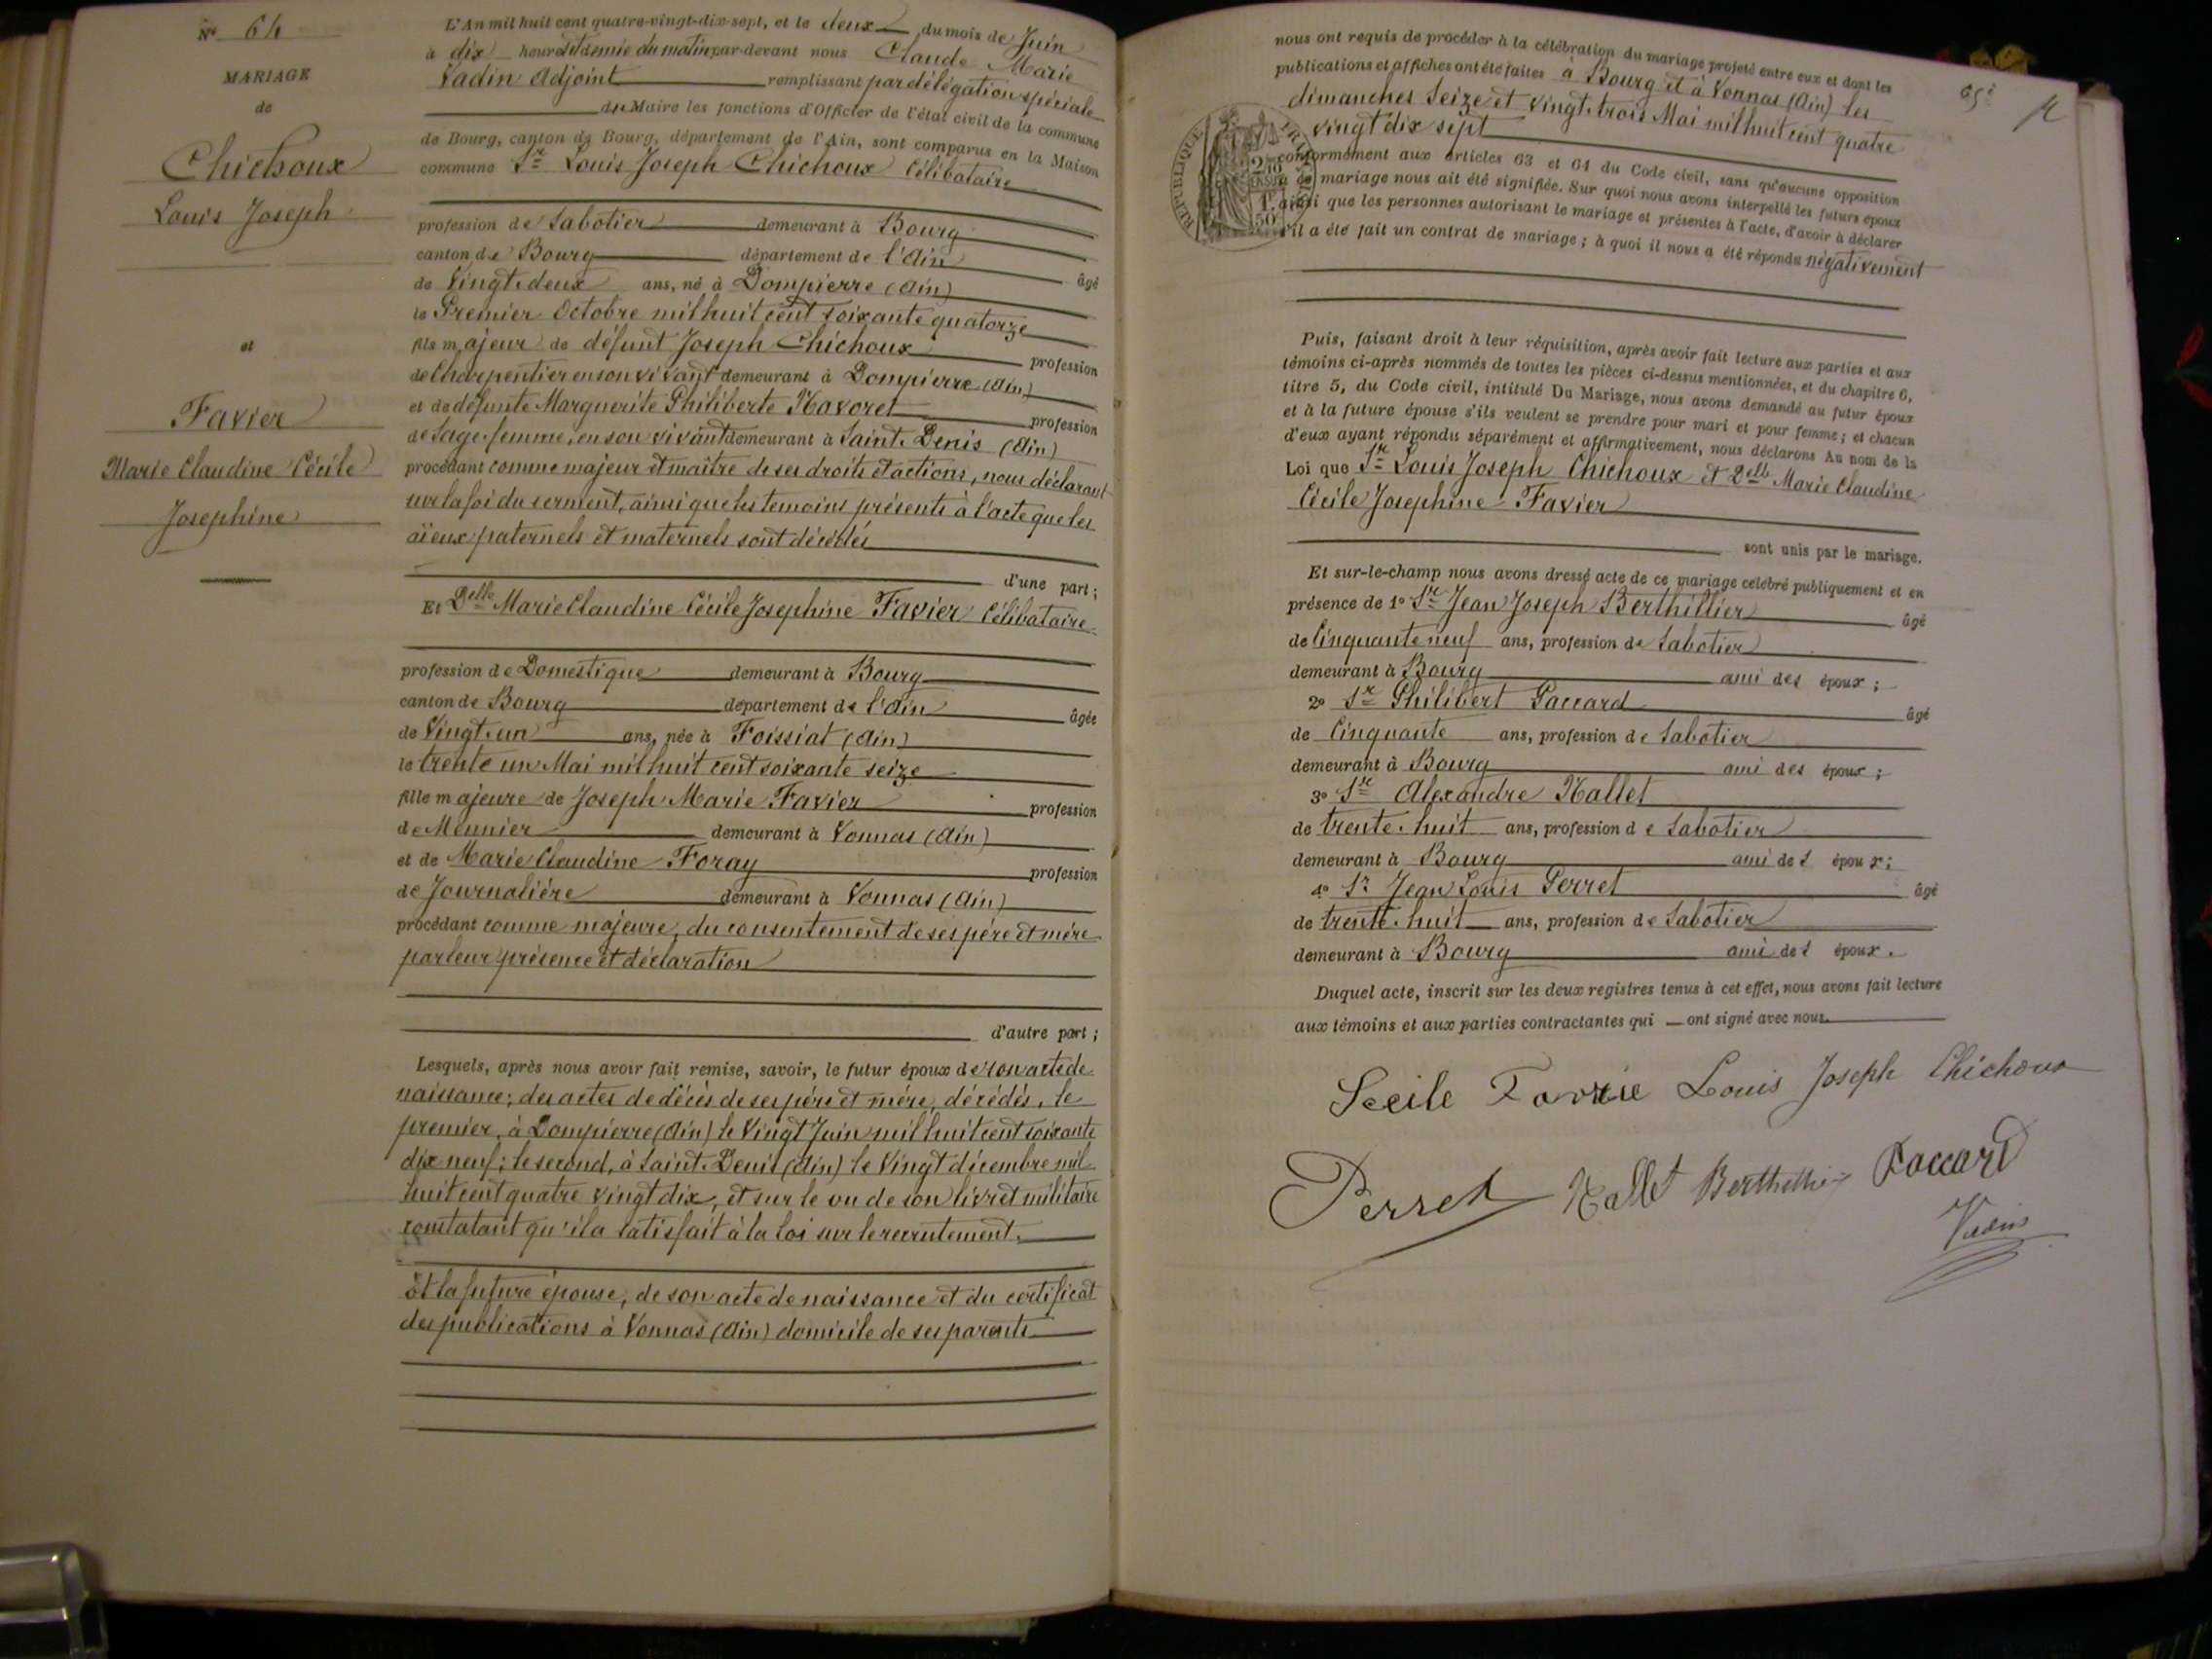 N° 64
MARIAGE
de
Chichoux
Louis Joseph
et
Favier
Marie Claudine Cécile
Josephine
L'An mil huit cent quatre-vingt-dix-sept, et le deux du mois de Juin
à dix heures et demie du matin par-devant nous Claude Marie
Vadin Adjoint remplissant par délégation spéciale
du Maire les fonctions d'Officier de l'état civil de la commune
de Bourg, canton de Bourg, département de l'Ain, sont comparus en la Maison
commune Sr Louis Joseph Chichoux Célibataire
profession de Sabotier demeurant à Bourg
canton de Bourg département de l'Ain âgé
de Vingt-deux ans, né à Dompierre (Ain)
le Premier Octobre mil huit cent soixante quatorze
fils majeur de défunt Joseph Chichoux profession
de Charpentier en son vivant demeurant à Dompierre (Ain)
et de défunte Marguerite Philiberte Navoret profession
de Sage-femme, en son vivant demeurant à Saint-Denis (Ain)
procédant comme majeur et maître de ses droits et actions, nous déclarant
sur la foi du serment, ainsi que les temoins présents à l'acte que les
aïeux paternels et maternels sont décédés
d'une part;
Et Delle Marie Claudine Cécile Josephine Favier Célibataire
profession de Domestique demeurant à Bourg
canton de Bourg département de l'Ain âgée
de Vingt-un ans, née à Foissiat (Ain)
le trente un Mai mil huit cent soixante seize
fille majeure de Joseph Marie Favier profession
de Meunier demeurant à Vonnas (Ain)
et de Marie Claudine Foray profession
de Journalière demeurant à Vonnas (Ain)
procédant comme majeure, du consentement de ses père et mère
par leur présence et déclaration
d'autre part;
Lesquels, après nous avoir fait remise, savoir, le futur époux de son acte de
naissance; des actes de décès de ses père et mère, décédés, le
premier, à Dompierre (Ain) le Vingt Juin mil huit cent soixante
dix neuf; le second, à Saint-Denis (Ain) le Vingt décembre mil
huit cent quatre vingt dix, et sur le vu de son livret militaire
constatant qu'il a satisfait à la loi sur le recrutement.
Et la future épouse, de son acte de naissance et du certificat
des publications à Vonnas (Ain) domicile de ses parents
65e
nous ont requis de procéder à la célébration du mariage projeté entre eux et dont les
publications et affiches ont été faites à Bourg et à Vonnas (Ain) les
dimanches Seize et Vingt-trois Mai mil huit cent quatre
vingt dix sept
conformément aux articles 63 et 64 du Code civil, sans qu'aucune opposition
à ce mariage nous ait été signifiée. Sur quoi nous avons interpellé les futurs époux
ainsi que les personnes autorisant le mariage et présentes à l'acte, d'avoir à déclarer
s'il a été fait un contrat de mariage; à quoi il nous a été répondu négativement
Puis, faisant droit à leur réquisition, après avoir fait lecture aux parties et aux
témoins ci-après nommés de toutes les pièces ci-dessus mentionnées, et du chapitre 6,
titre 5, du Code civil, intitulé Du Mariage, nous avons demandé au futur époux
et à la future épouse s'ils veulent se prendre pour mari et pour femme; et chacun
d'eux ayant répondu séparément et affirmativement, nous déclarons Au nom de la
Loi que Sr Louis Joseph Chichoux et Delle Marie Claudine
Cécile Josephine Favier
sont unis par le mariage.
Et sur-le-champ nous avons dressé acte de ce mariage célébré publiquement et en
présence de 1° Sr Jean Joseph Berthillier âgé
de Cinquante neuf ans, profession de Sabotier
demeurant à Bourg ami des époux;
2° Sr Philibert Paccard âgé
de Cinquante ans, profession de Sabotier
demeurant à Bourg ami des époux;
3° Sr Alexandre Nallet
de trente-huit ans, profession de Sabotier
demeurant à Bourg ami des époux;
4° Sr Jean Louis Perret âgé
de trente-huit ans, profession de Sabotier
demeurant à Bourg ami des époux.
Duquel acte, inscrit sur les deux registres tenus à cet effet, nous avons fait lecture
aux témoins et aux parties contractantes qui ont signé avec nous.
Louis Joseph Chichoux
Perret Nallet Berthillier Paccard
Vadin
RÉPUBLIQUE